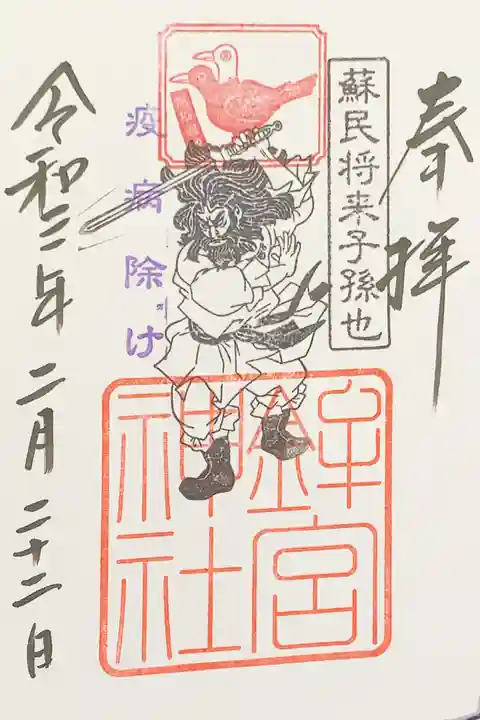 奉拝
蘇民将来子孫也
疫病除け
鉾宮
神社
令和二年 二月二十二日